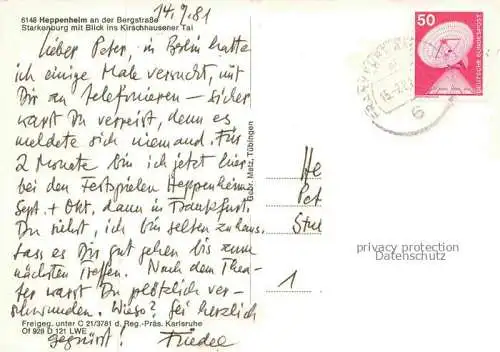 14.9.81
6148 Heppenheim an der Bergstraße
Starkenburg mit Blick ins Kirschhausener Tal
Lieber Peter, in Berlin hatte
ich einige Male versucht, mit
Dir zu telefonieren – sicher
warst Du verreist, denn es
meldete sich niemand. Für
2 Monate bin ich jetzt hier
bei den Festspielen Heppenheim
Sept. + Okt., dann in Frankfurt.
Du siehst, ich bin selten zuhaus.
Lass es Dir gut gehen bis zum
nächsten Treffen. Nach dem Thea-
ter warst Du plötzlich ver-
schwunden. Wieso? Sei herzlich
gegrüßt! Friedel
Freigeg. unter C 21/3781 d. Reg.-Präs. Karlsruhe
Of 928 D 121 LWE
Gebr. Metz, Tübingen
50
DEUTSCHE BUNDESPOST
6
He
Pet
Stu
1
privacy protection
Datenschutz